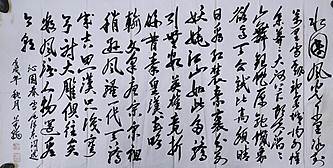 北国风光千里冰封
万里雪飘望长城内外
余莽莽大河上下顿失滔滔
山舞银蛇原驰蜡象
欲与天公试比高须晴
日看红装素裹分外
妖娆江山如此多娇
引无数英雄竞折
腰惜秦皇汉武略
输文采唐宗宋祖
稍逊风骚一代天骄
成吉思汗只识弯
弓射大雕俱往矣
数风流人物还看
今朝
沁园春雪
秋月